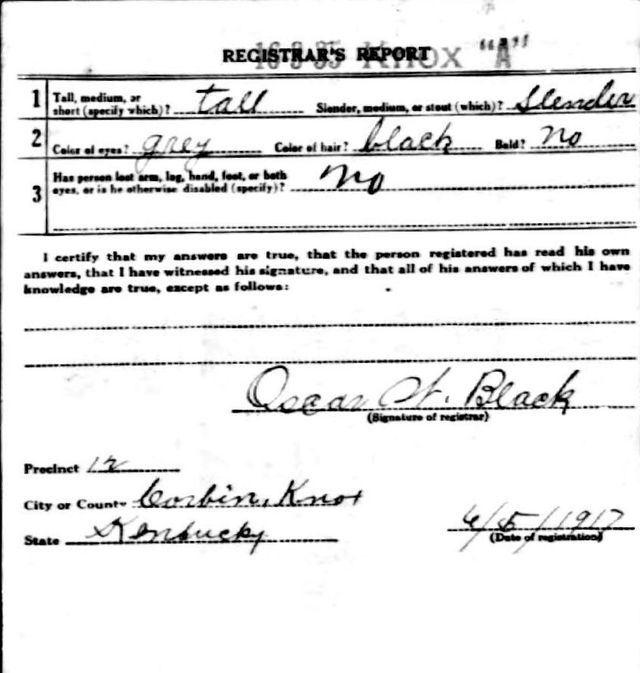 16-3-35 KNOX "A"
REGISTRAR'S REPORT
1 Tall, medium, or short (specify which)? tall Slender, medium, or stout (which)? Slender
2 Color of eyes? grey Color of hair? black Bald? no
3 Has person lost arm, leg, hand, foot, or both
eyes, or is he otherwise disabled (specify)? no
I certify that my answers are true, that the person registered has read his own
answers, that I have witnessed his signature, and that all of his answers of which I have
knowledge are true, except as follows:
Oscar W. Black
(Signature of registrar)
Precinct 12
City or County Corbin, Knox
State Kentucky
6/5/1917
(Date of registration)